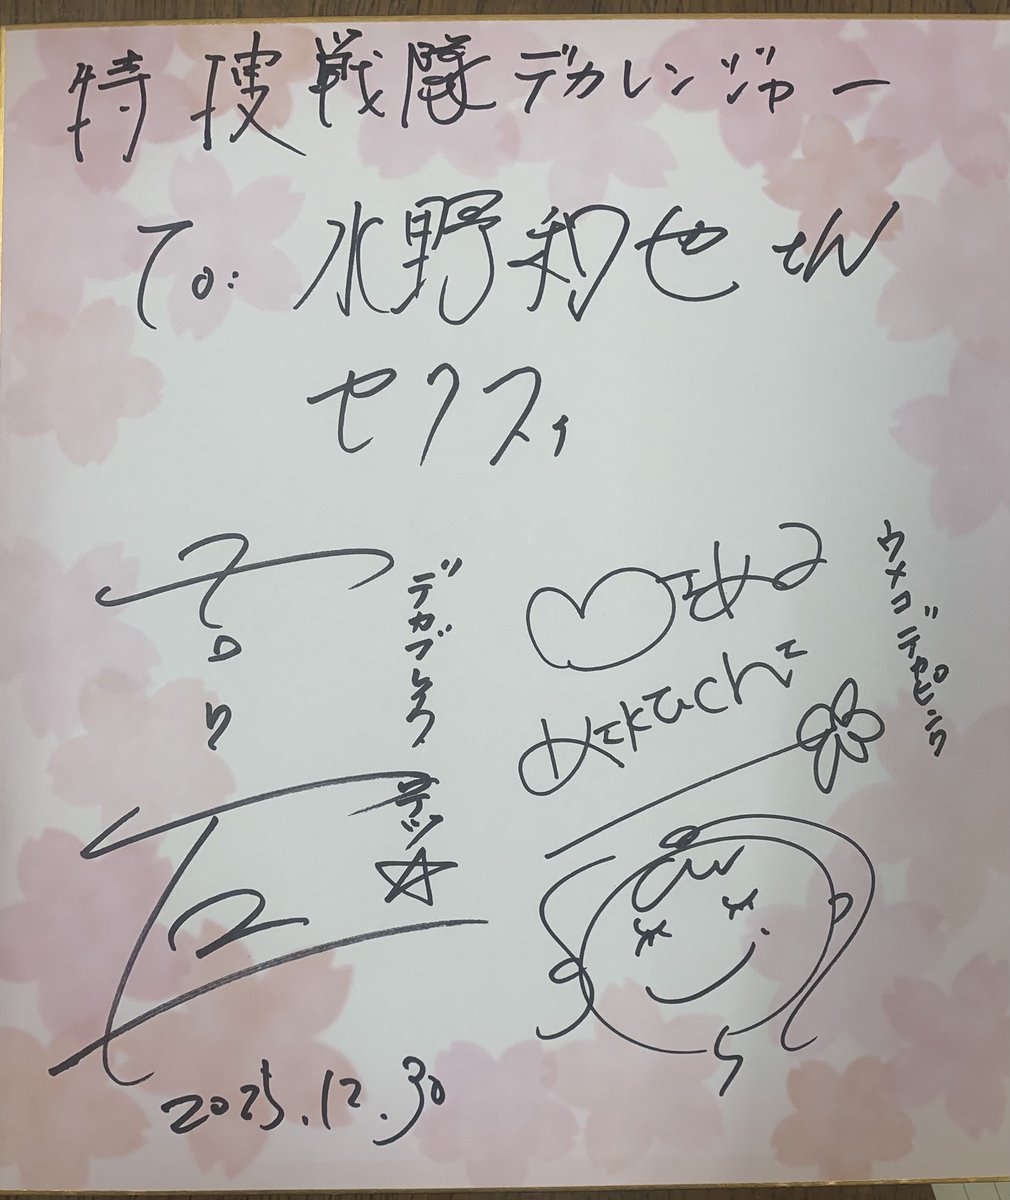 特捜戦隊デカレンジャー
To: 水野和也さん
セクスィ
デカブレイク
テツ☆
ウメコ デカピンク
2025.12.30